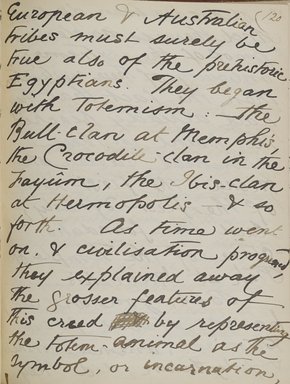 European & Australian 120
tribes must surely be
true also of the prehistoric
Egyptians. They began
with totemism: – the
Bull-clan at Memphis,
the Crocodile-clan in the
Fayûm, the Ibis-clan
at Hermopolis – & so
forth. As time went
on, & civilisation progressed,
they explained away
the grosser features of
this creed by representing
the totem-animal as the
symbol, or incarnation,